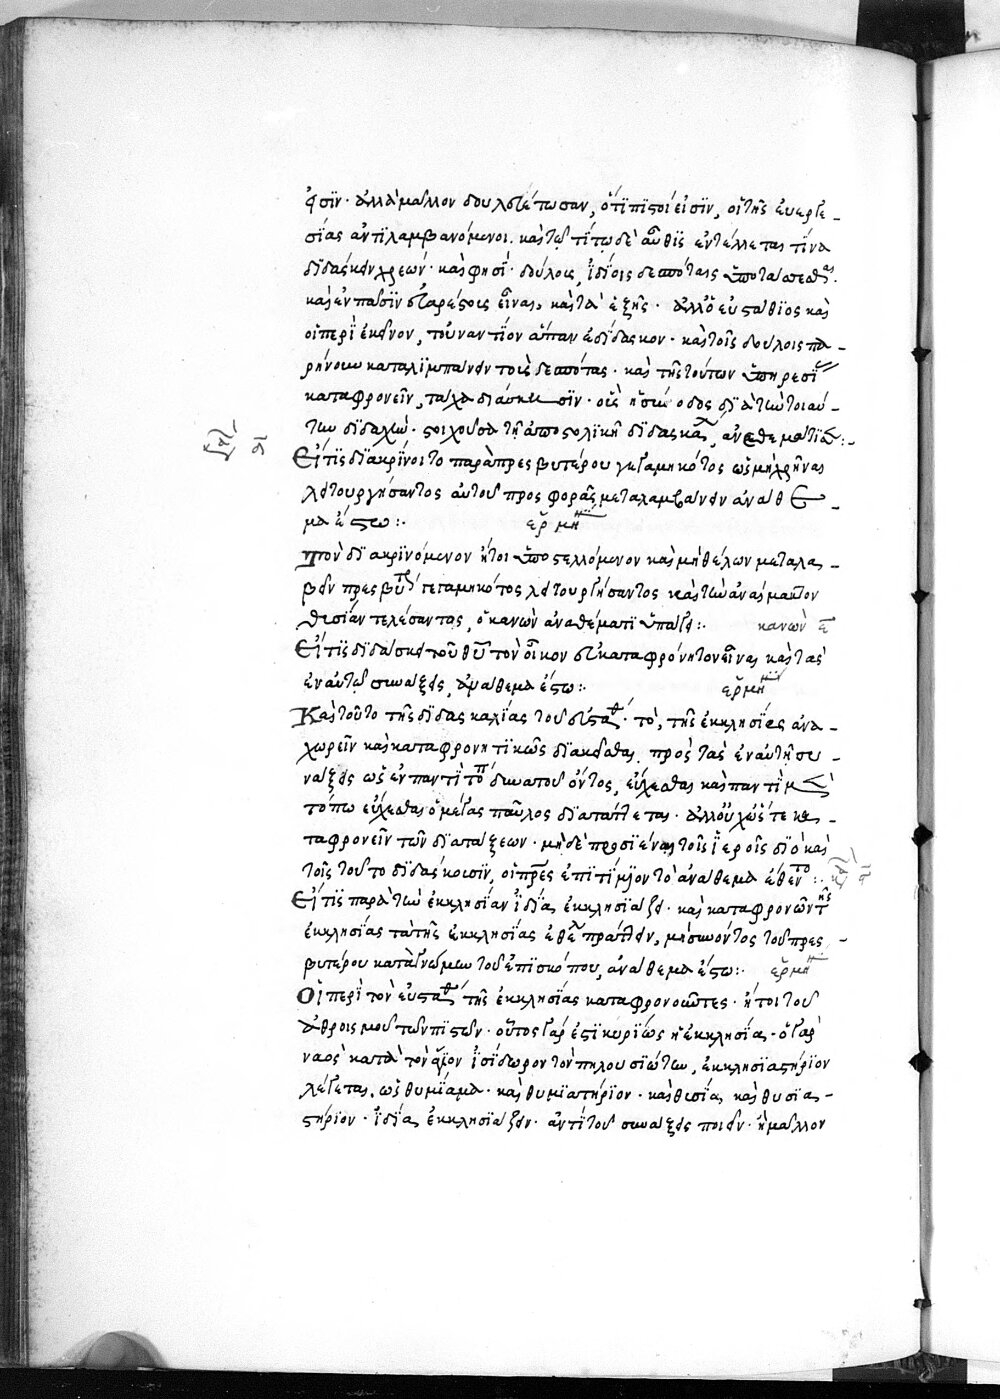 φησίν· ἀλλὰ μᾶλλον δουλευέτωσαν, ὅτι πιστοί εἰσιν, οἱ τῆς εὐεργε-
σίας ἀντιλαμβανόμενοι. καὶ τῷ τίτῳ δὲ αὖθις ἐντέλλεται τίνα
διδάσκειν χρεών· καὶ φησί· δούλους ἰδίοις δεσπόταις ὑποτάσσεσθαι·
καὶ ἐν πᾶσιν εὐαρέστους εἶναι, καὶ τὰ ἑξῆς· ἀλλ' ὁ εὐστάθιος καὶ
οἱ περὶ ἐκεῖνον, τοὐναντίον ἅπαν ἐδίδασκον· καὶ τοῖς δούλοις πα-
ρήνουν καταλιμπάνειν τοὺς δεσπότας· καὶ τῆς τούτων ὑπηρεσίας
καταφρονεῖν,
των διδαχῶν· στοιχοῦσα τῇ ἀποστολικῇ διδασκαλ, ἀναθεματίζει:-
Εἴ τις διακρίνοιτο παρὰ πρεσβυτέρου γεγαμηκότος ὡς μὴ χρῆναι
λειτουργήσαντος αὐτοῦ προσφορᾶς μεταλαμβάνειν ἀνάθε-
μα ἔστω:· ἑρμη
Τὸν διακρινόμενον ἤτοι ὑποστελλόμενον καὶ μὴ θέλων μεταλα-
βεῖν πρεσβυτ γεγαμηκότος λειτουργήσαντος καὶ τὴν ἀναίμακτον
θυσίαν τελέσαντος, ὁ κανὼν ἀναθέματι ὑπάγει:· κανὼν ε
Εἴ τις διδάσκει τοῦ θυ τὸν οἶκον εὐκαταφρόνητον εἶναι καὶ τὰς
ἐν αὐτῷ συνάξεις, ἀνάθεμα ἔστω:· ἑρμη
Καὶ τοῦτο τῆς διδασκαλίας τοῦ εὐσταθ· τὸ, τῆς ἐκκλησίας ἀνα-
χωρεῖν καὶ καταφρονητικῶς διακεῖσθαι πρὸς τὰς ἐν αὐτῇ συ-
νάξεις ὡς ἐν παντὶ τόπ δυνατοῦ ὄντος, εὔχεσθαι καὶ παντὶ μὲν
τόπω εὔχεσθαι ὁ μέγας παῦλος διατάττεται· ἀλλ' οὐχ ὥστε κα-
ταφρονεῖν τῶν διατάξεων· μὴ δὲ προσιέναι τοῖς ἱεροῖς διὸ καὶ
τοῖς τοῦτο διδάσκουσιν, οἱ πρες ἐπιτίμιον τὸ ἀνάθεμα ἔθεντο:·
Εἴ τις παρὰ τὴν ἐκκλησίαν ἰδία ἐκκλησιάζει· καὶ καταφρονῶν τῆς
ἐκκλησίας τὰ τῆς ἐκκλησίας ἐθέλ πράττειν, μὴ συνόντος τοῦ πρεσ-
βυτέρου κατὰ γνώμην τοῦ ἐπισκόπου, ἀνάθεμα ἔστω:· ἑρμη
Οἱ περὶ τὸν εὐσταθ τῆς ἐκκλησίας καταφρονοῦντες· ἤτοι τοῦ
ἀθροισμοῦ τῶν πιστῶν· οὗτος γάρ ἐστι κυρίως ἡ ἐκκλησία· ὁ γὰρ
ναὸς κατὰ τὸν ἅγιον ἰσίδωρον τὸν πηλουσιώτην, ἐκκλησιαστήριον
λέγεται. ὡς θυμίαμα· καὶ θυμιατήριον· καὶ θυσία, καὶ θυσια-
στήριον· ἰδία ἐκκλησιάζειν· ἀντὶ τοῦ συνάξεις ποιεῖν· ἢ μᾶλλον